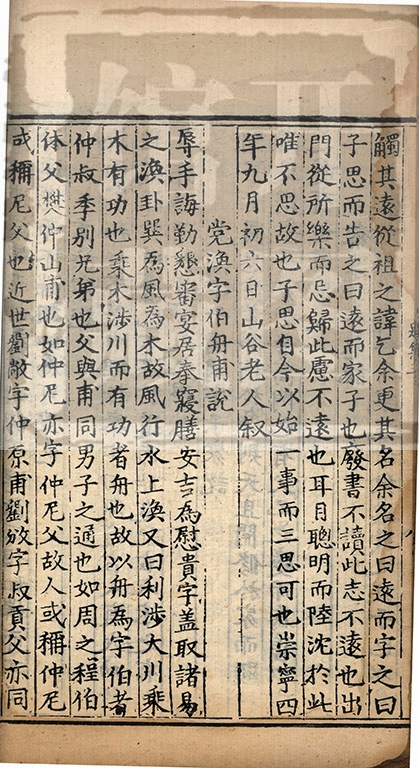 觸其遠從祖之諱乞余更其名余名之曰遠而字之曰
子思而告之曰遠而家子也廢書不讀此志不遠也出
門從所樂而忌歸此慮不遠也耳目聰明而陸沈於此
唯不思故也子思自今以始一事而三思可也崇寧四
年九月初六日山谷老人叙
党渙字伯舟甫說
辱手誨勤懇審宴居拳寢膳安吉為慰貴字盖取諸易
之渙卦巽為風為木故風行水上渙又曰利涉大川乘
木有功也乘木涉川而有功者舟也故以舟為字伯者
仲叔季别兄弟也父與甫同男子之通也如周之程伯
休父樊仲山甫也如仲尼亦字仲尼父故人或稱仲尼
或稱尼父也近世劉敞字仲原甫劉攽字叔貢父亦同